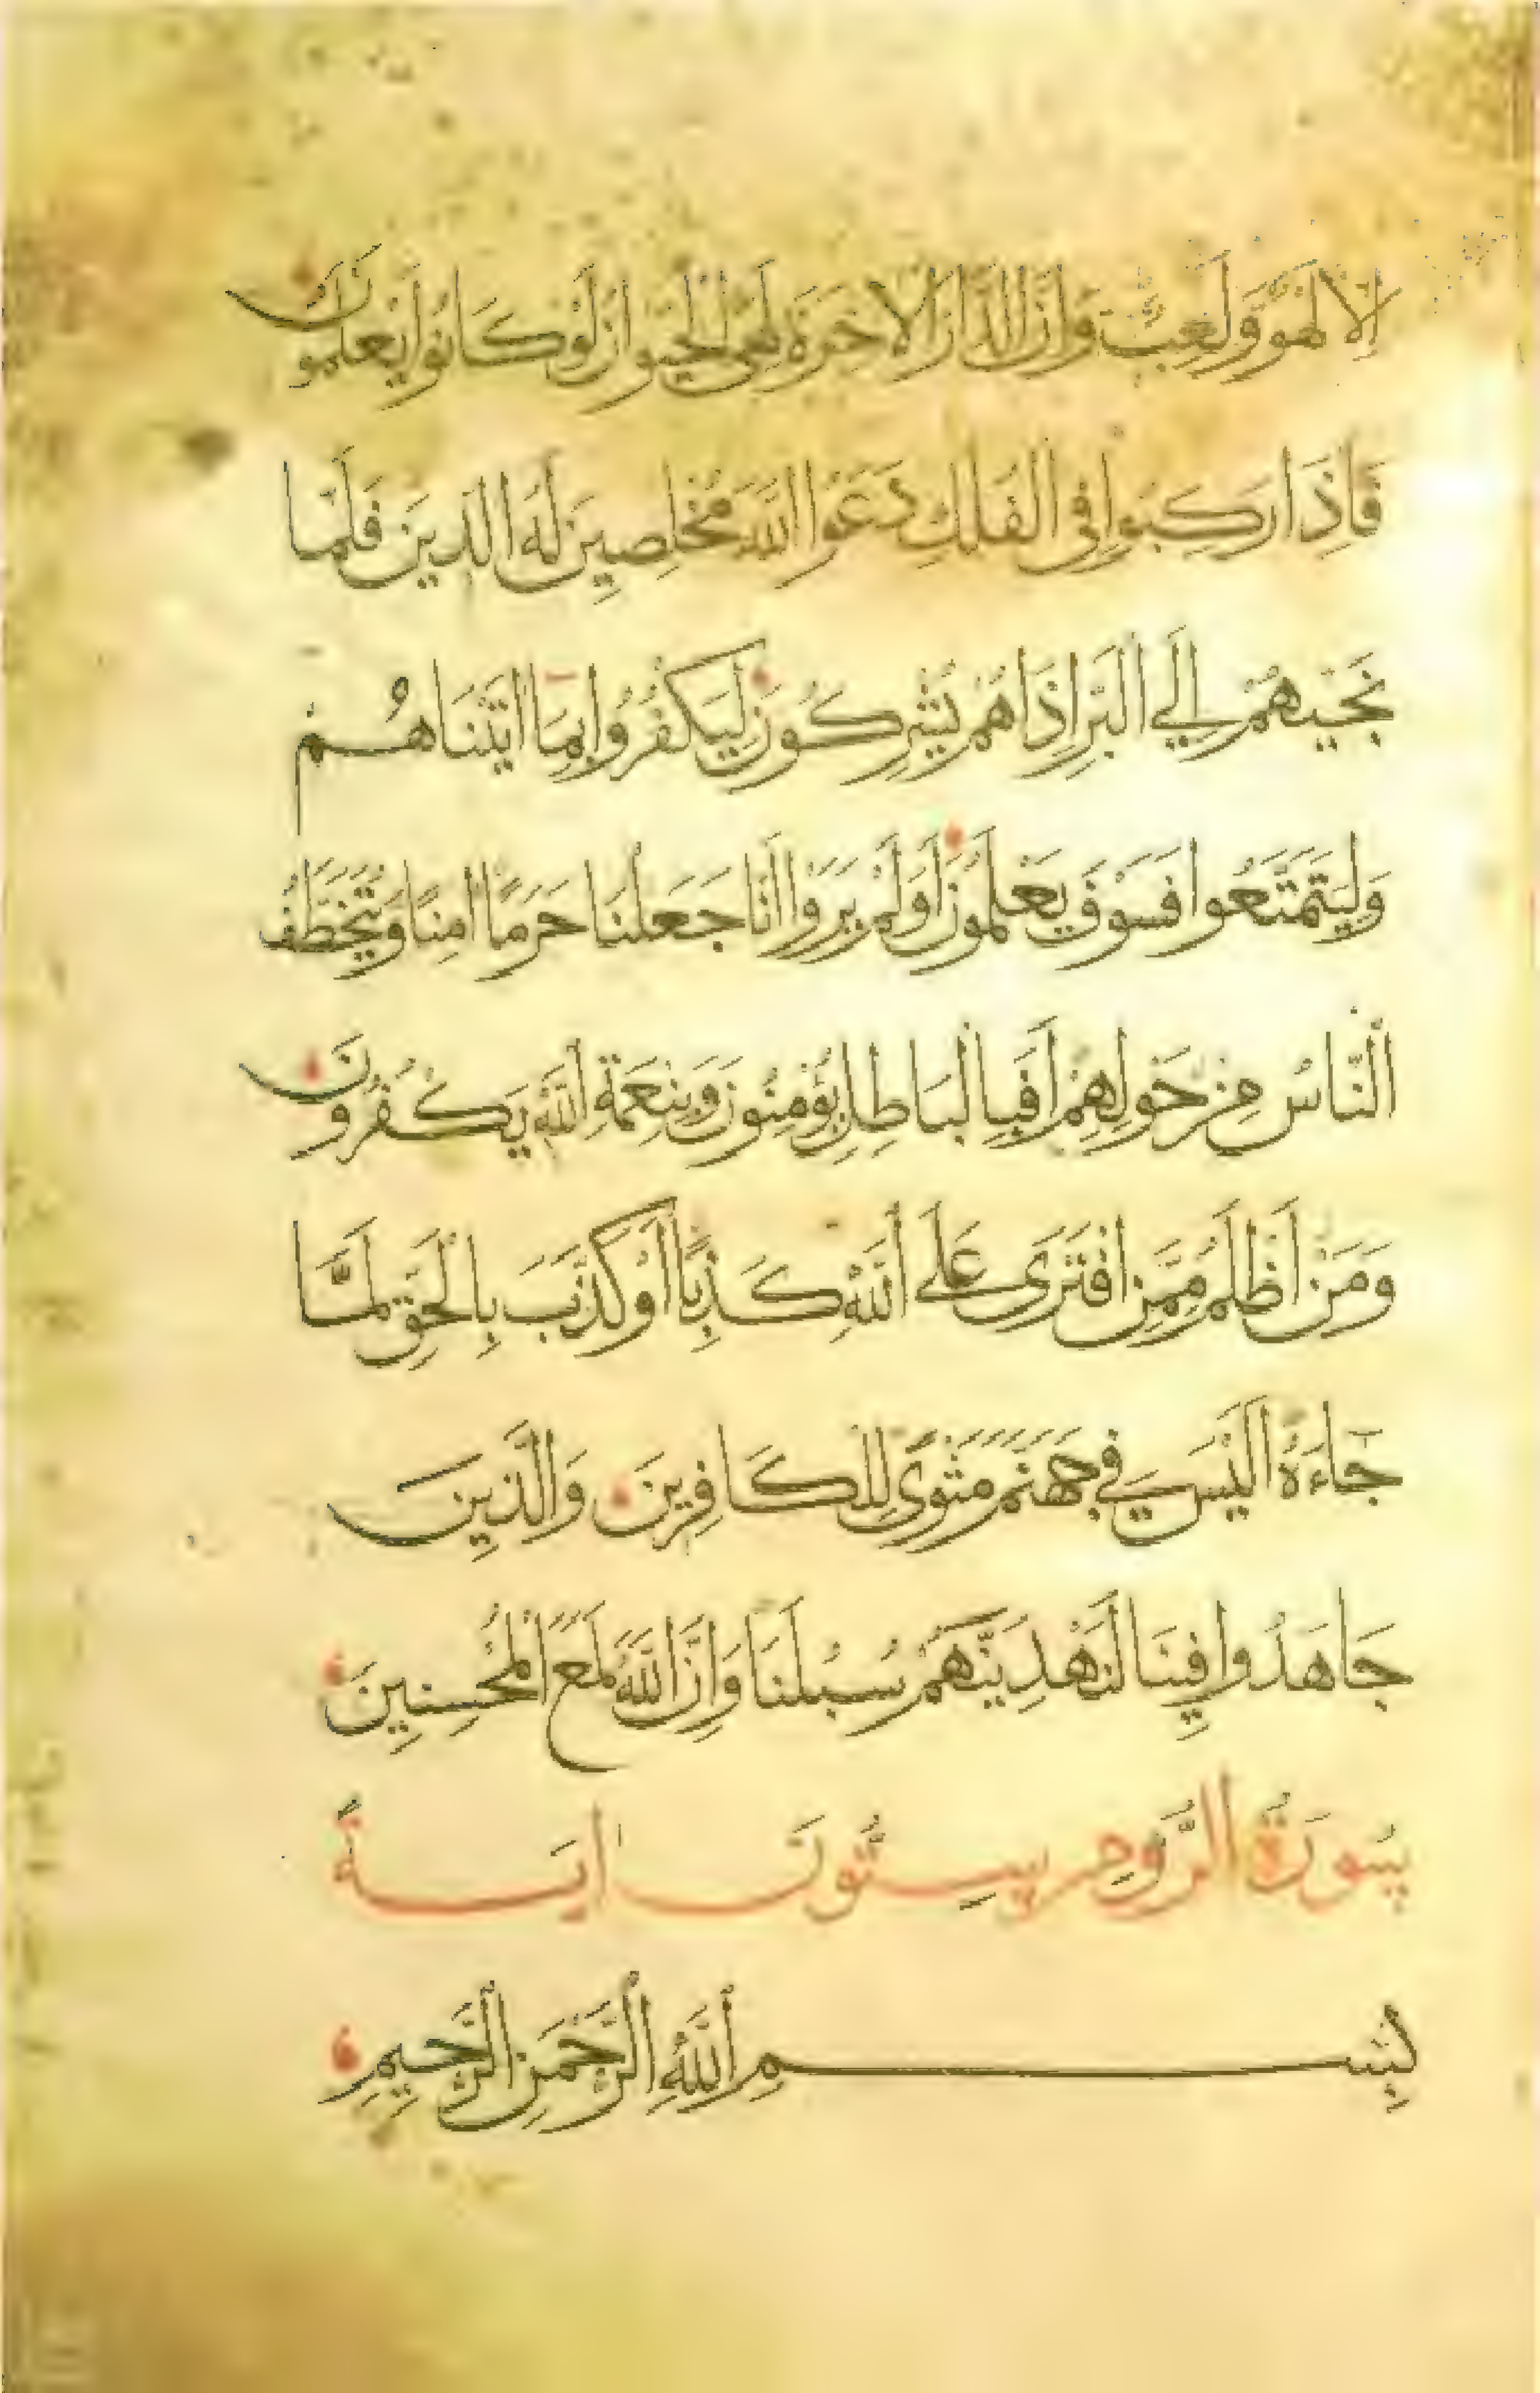 إِلَّا لَهْوٌ وَلَعِبٌ وَإِنَّ الدَّارَ الْآخِرَةَ لَهِيَ الْحَيَوَانُ لَوْ كَانُوا يَعْلَمُونَ
فَإِذَا رَكِبُوا فِي الْفُلْكِ دَعَوُا اللَّهَ مُخْلِصِينَ لَهُ الدِّينَ فَلَمَّا
نَجَّيهُمْ إِلَى الْبَرِّ إِذَا هُمْ يُشْرِكُونَ لِيَكْفُرُوا بِمَا آتَيْنَاهُمْ
وَلِيَتَمَتَّعُوا فَسَوْفَ يَعْلَمُونَ أَوَلَمْ يَرَوْا أَنَّا جَعَلْنَا حَرَمًا آمِنًا وَيُتَخَطَّفُ
النَّاسُ مِنْ حَوْلِهِمْ أَفَبِالْبَاطِلِ يُؤْمِنُونَ وَبِنِعْمَةِ اللَّهِ يَكْفُرُونَ
وَمَنْ أَظْلَمُ مِمَّنِ افْتَرَى عَلَى اللَّهِ كَذِبًا أَوْ كَذَّبَ بِالْحَقِّ لَمَّا
جَاءَهُ أَلَيْسَ فِي جَهَنَّمَ مَثْوًى لِلْكَافِرِينَ وَالَّذِينَ
جَاهَدُوا فِينَا لَنَهْدِيَنَّهُمْ سُبُلَنَا وَإِنَّ اللَّهَ لَمَعَ الْمُحْسِنِينَ
سُورَةُ الرُّومِ سِتُّونَ آيَةً
بِسْمِ اللَّهِ الرَّحْمَنِ الرَّحِيمِ